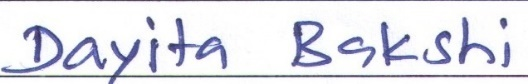 Dayita Bakshi